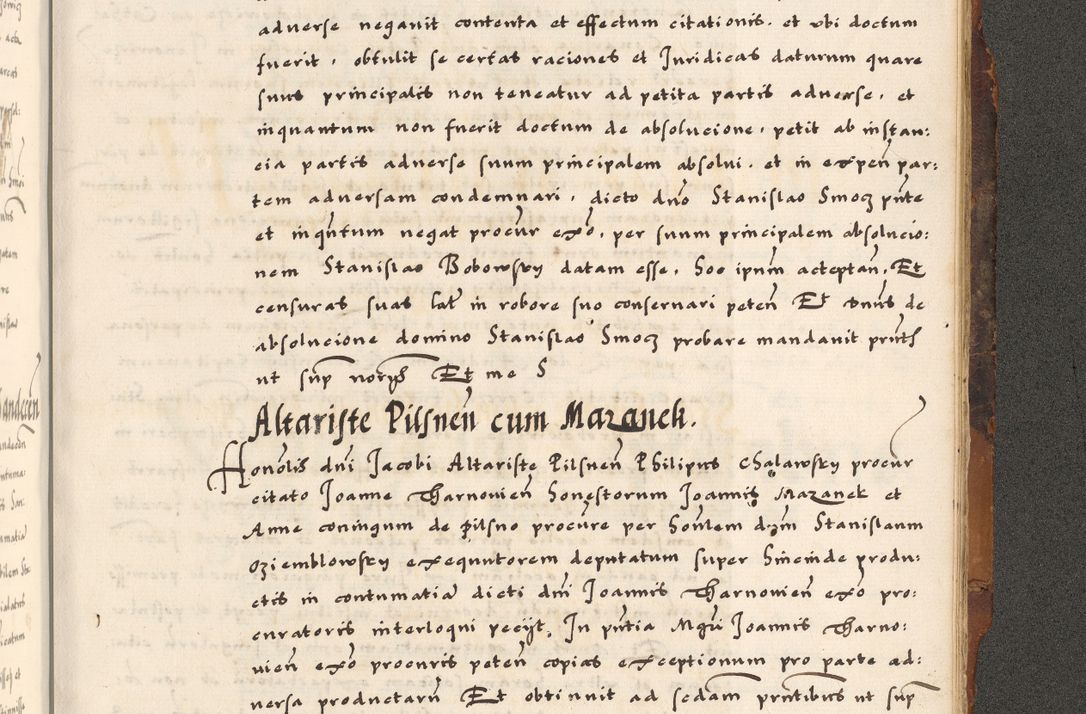 adverse negavit contenta et effectum citationis. et vbi doctum
fuerit, obtulit se certas raciones et Juridicas daturum quare
suus principalis non teneatur ad petita partis adverse, et
inquantum non fuerit doctum de absolucione, petit ab instan:
cia partis adverse suum principalem absolvi. et in expeñ par:
tem adversam condemnari, dicto dño Stanislao Smocz pñte
et inqñtum negat procur exo, per suum principalem absolucio:
nem Stanislao Bobowsky datam esse, hoc ipsum acceptañ, Et
censuras suas lat in robore suo conservari peteñ Et dñus de
absolucione domino Stanislao Smocz probare mandavit pñtis
ut sup Et me S
Altariste Pilsneñ cum Mazanek.
Honolis dni Jacobi Altariste Pilsneñ Philipus Chalawsky procur
citato Joanne Tharnovieñ honestorum Joannis Mazanek et
Anne coniugum de Pilsno procure per honlem dzm Stanislaum
Oziemblowsky exequutorem deputatum super hinende produ:
ctis in contumatia dicti dni Joannis Tharnovieñ exo pro:
curatoris interloqui pecijt, In pñtia Mgri Joannis Tharno:
vieñ exo procuris peteñ copias exceptionum pro parte ad:
versa productarñ Et obtinuit ad sedam pñtibus ut sup